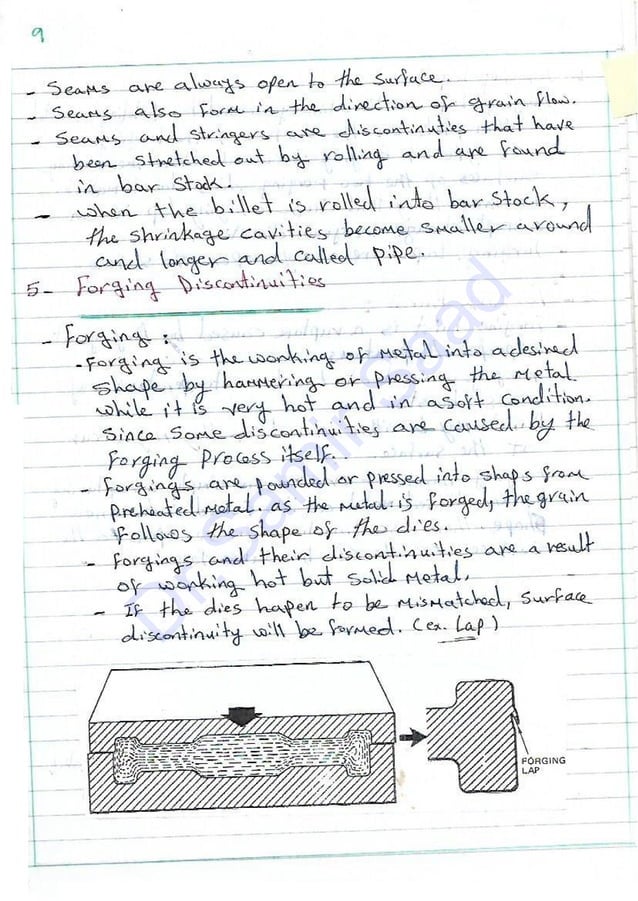 9
- Seams are always open to the surface.
- Seams also form in the direction of grain flow.
- Seams and stringers are discontinuties that have
been stretched out by rolling and are found
in bar stock.
- when the billet is rolled into bar stock,
the shrinkage cavities become smaller around
and longer and called pipe.
5- Forging Discontinuities
- Forging :
- Forging is the working of metal into a desired
shape by hammering or pressing the metal
while it is very hot and in a soft condition.
Since some discontinuities are caused by the
forging process itself.
- forgings are pounded or pressed into shaps from
preheated metal. as the metal is forged, the grain
follows the shape of the dies.
- forgings and their discontinuities are a result
of working hot but solid metal.
- If the dies hapen to be mismatched, surface
discontinuity will be formed. (ex. Lap)
FORGING
LAP